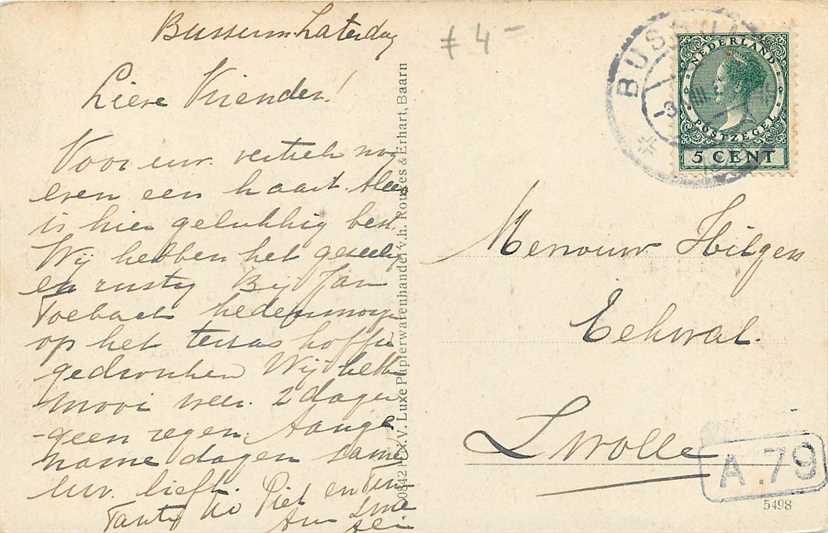 Bussum Zaterdag
Lieve Vrienden!
Voor uw. vertrek nog
even een kaart. Alles
is hier gelukkig best.
Wij hebben het gezellig
en rustig Bij Jan
Toebact hedenmorg
op het terras koffie
gedronken Wij hebben
mooi weer. 2 dagen
geen regen. Aange-
name dagen samen
Piet en
Tante
F 4 -
BUSSUM
NEDERLAND
POSTZEGEL
5 CENT
Mevrouw Hilgen
Eekwal.
Zwolle
A.79
5498
N.V. Luxe Papierwarenhandel v.h. Roukes & Erhart, Baarn